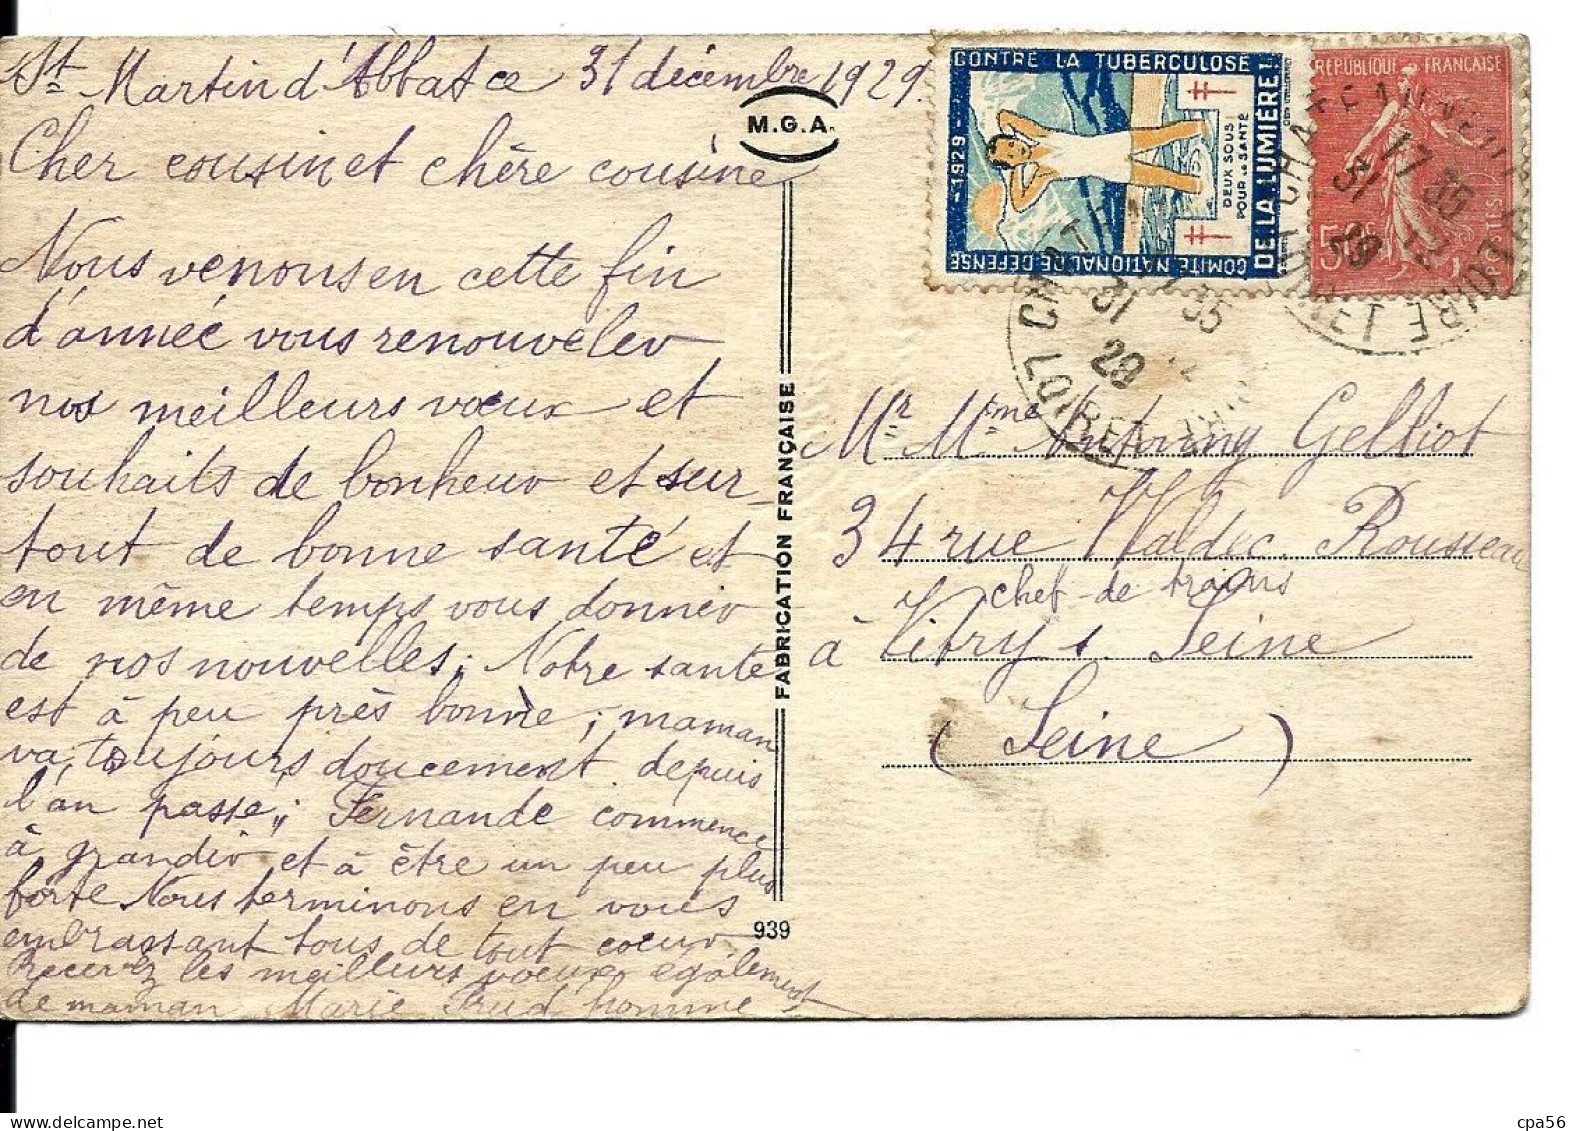 St Martin d'Abbat ce 31 décembre 1929.
Cher cousin et chère cousine
Nous venons en cette fin
d'année vous renouveler
nos meilleurs vœux et
souhaits de bonheur et sur-
tout de bonne santé et
en même temps vous donner
de nos nouvelles; Notre santé
est à peu près bonne; maman
va toujours doucement depuis
l'an passé; Fernande commence
à grandir et à être un peu plus
forte Nous terminons en vous
embrassant tous de tout coeur
Recevez les meilleurs voeux également
de maman Marie Prud'homme
M.G.A.
FABRICATION FRANÇAISE
939
CONTRE LA TUBERCULOSE
DE LA LUMIÈRE!
COMITÉ NATIONAL DE DÉFENSE
-1929-
DEUX SOUS
POUR LA SANTÉ
REPUBLIQUE FRANÇAISE
POSTES
50
CHATEAUNEUF S LOIRE
LOIRET
17 35
31 12
29
Mr Mme Antoiny Gelliot
34 rue Waldec Rousseau
chef de trains
à Vitry s. Seine
(Seine)
cpa56